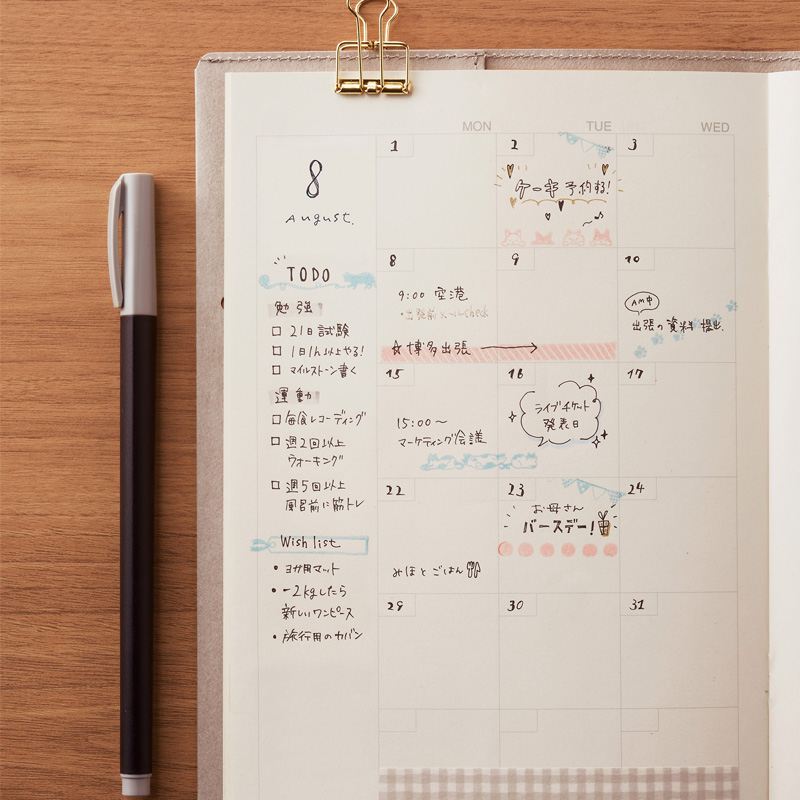 MON TUE WED
8
August.
TODO
勉強
□ 21日試験
□ 1日1h以上やる!
□ マイルストーン書く
運動
□ 毎食レコーディング
□ 週2回以上
ウォーキング
□ 週5回以上
風呂前に筋トレ
Wish list
• ヨガ用マット
• -2kgしたら
新しいワンピース
• 旅行用のカバン
1
2
ケーキ予約する!
3
8
9:00 空港
・出張前メールcheck
☆博多出張 →
9
10
AM中
出張の資料提出.
15
15:00〜
マーケティング会議
16
ライブチケット
発表日
17
22
みほとごはん
23
お母さん
バースデー!
24
29
30
31